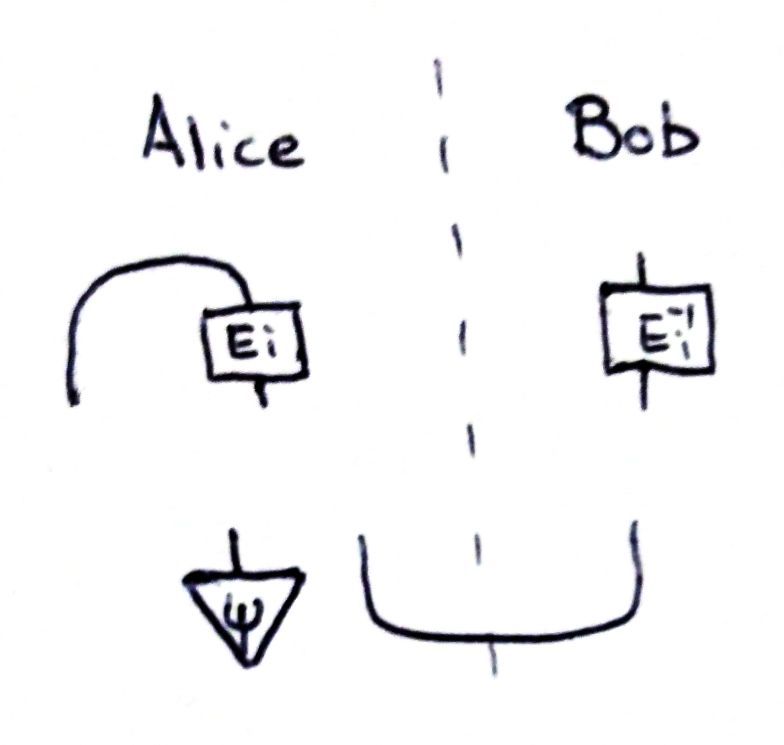 Alice Bob
Ei Ei⁻¹
ψ